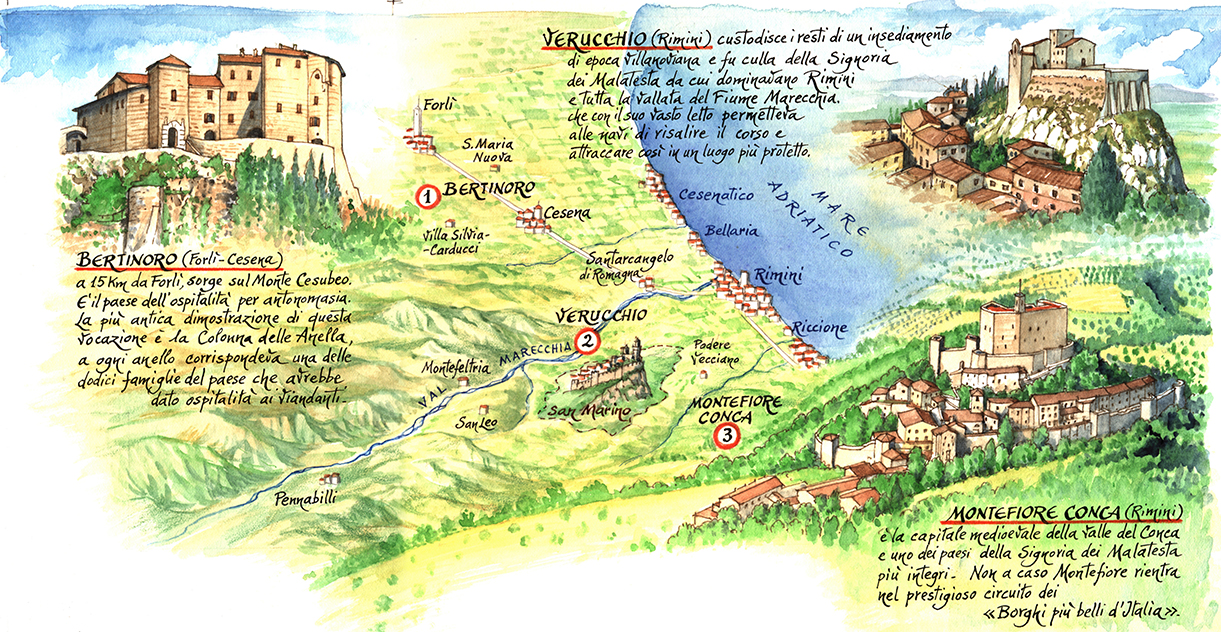 VERUCCHIO (Rimini) custodisce i resti di un insediamento
di epoca villanoviana e fu culla della Signoria
dei Malatesta da cui dominavano Rimini
e tutta la vallata del Fiume Marecchia.
che con il suo vasto letto permetteva
alle navi di risalire il corso e
attraccare così in un luogo più protetto.
Forlì
S. Maria
Nuova
1 BERTINORO
Cesena
Villa Silvia-
-Carducci
Cesenatico
MARE
ADRIATICO
Bellaria
Santarcangelo
di Romagna
Rimini
Riccione
BERTINORO (Forlì-Cesena)
a 15 Km da Forlì, sorge sul Monte Cesubeo.
E' il paese dell'ospitalità per antonomasia.
La più antica dimostrazione di questa
vocazione è la Colonna delle Anella,
a ogni anello corrispondeva una delle
dodici famiglie del paese che avrebbe
dato ospitalità ai viandanti.
VERUCCHIO
2
VAL MARECCHIA
Montefeltria
San Leo
San Marino
Podere
Vecciano
MONTEFIORE
CONCA
3
Pennabilli
MONTEFIORE CONCA (Rimini)
è la capitale medioevale della valle del Conca
e uno dei paesi della Signoria dei Malatesta
più integri- Non a caso Montefiore rientra
nel prestigioso circuito dei
«Borghi più belli d'Italia».